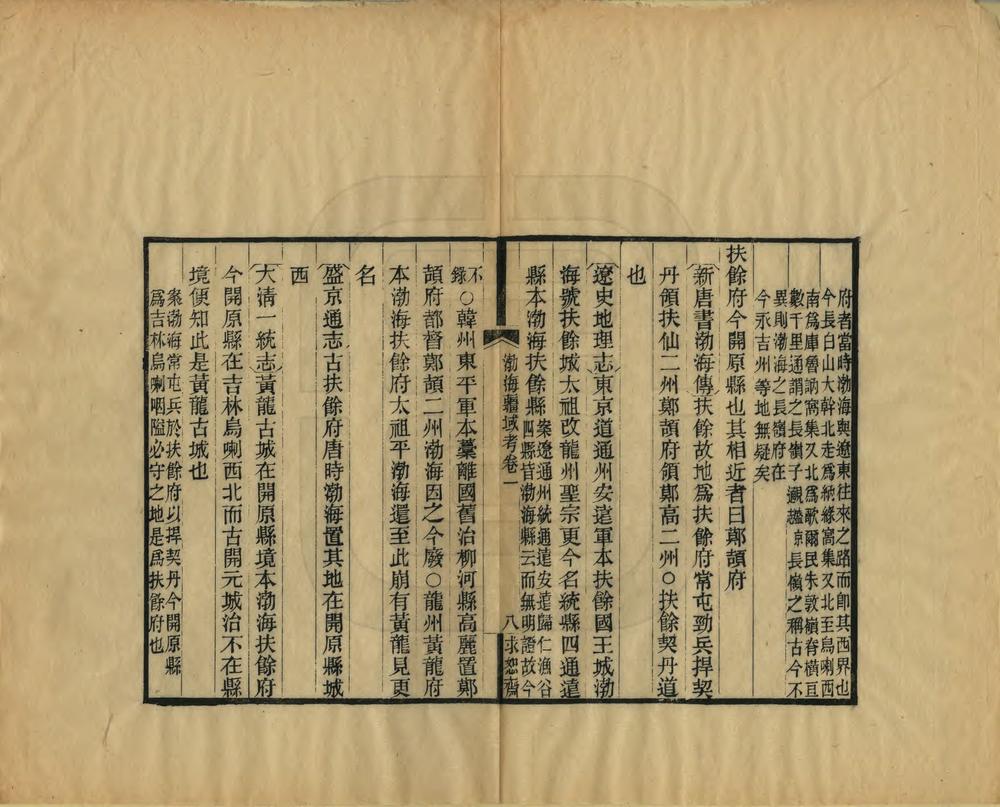 府者當時渤海與遼東往來之路而卽其西界也
今長白山大幹北走爲納綠窩集又北至烏喇西
南爲庫魯訥窩集又北爲歌爾民朱敦嶺脊橫亘
數千里通謂之長嶺子觀盛京長嶺之稱古今不
異則渤海之長嶺府在
今永吉州等地無疑矣
扶餘府今開原縣也其相近者曰鄚頡府
新唐書渤海傳扶餘故地爲扶餘府常屯勁兵捍契
丹領扶仙二州鄚頡府領鄚高二州○扶餘契丹道
也
遼史地理志東京道通州安遠軍本扶餘國王城渤
海號扶餘城太祖改龍州聖宗更今名統縣四通遠
縣本渤海扶餘縣案遼通州統通遠安遠歸仁漁谷
四縣皆渤海縣云而無明證故今
渤海疆域考卷一 八 求恕齋
不
錄○韓州東平軍本藁離國舊治柳河縣高麗置鄚
頡府都督鄚頡二州渤海因之今廢○龍州黃龍府
本渤海扶餘府太祖平渤海還至此崩有黃龍見更
名
盛京通志古扶餘府唐時渤海置其地在開原縣城
西
大清一統志黃龍古城在開原縣境本渤海扶餘府
今開原縣在吉林烏喇西北而古開元城治不在縣
境便知此是黃龍古城也
案渤海常屯兵於扶餘府以捍契丹今開原縣
爲吉林烏喇咽隘必守之地是爲扶餘府也